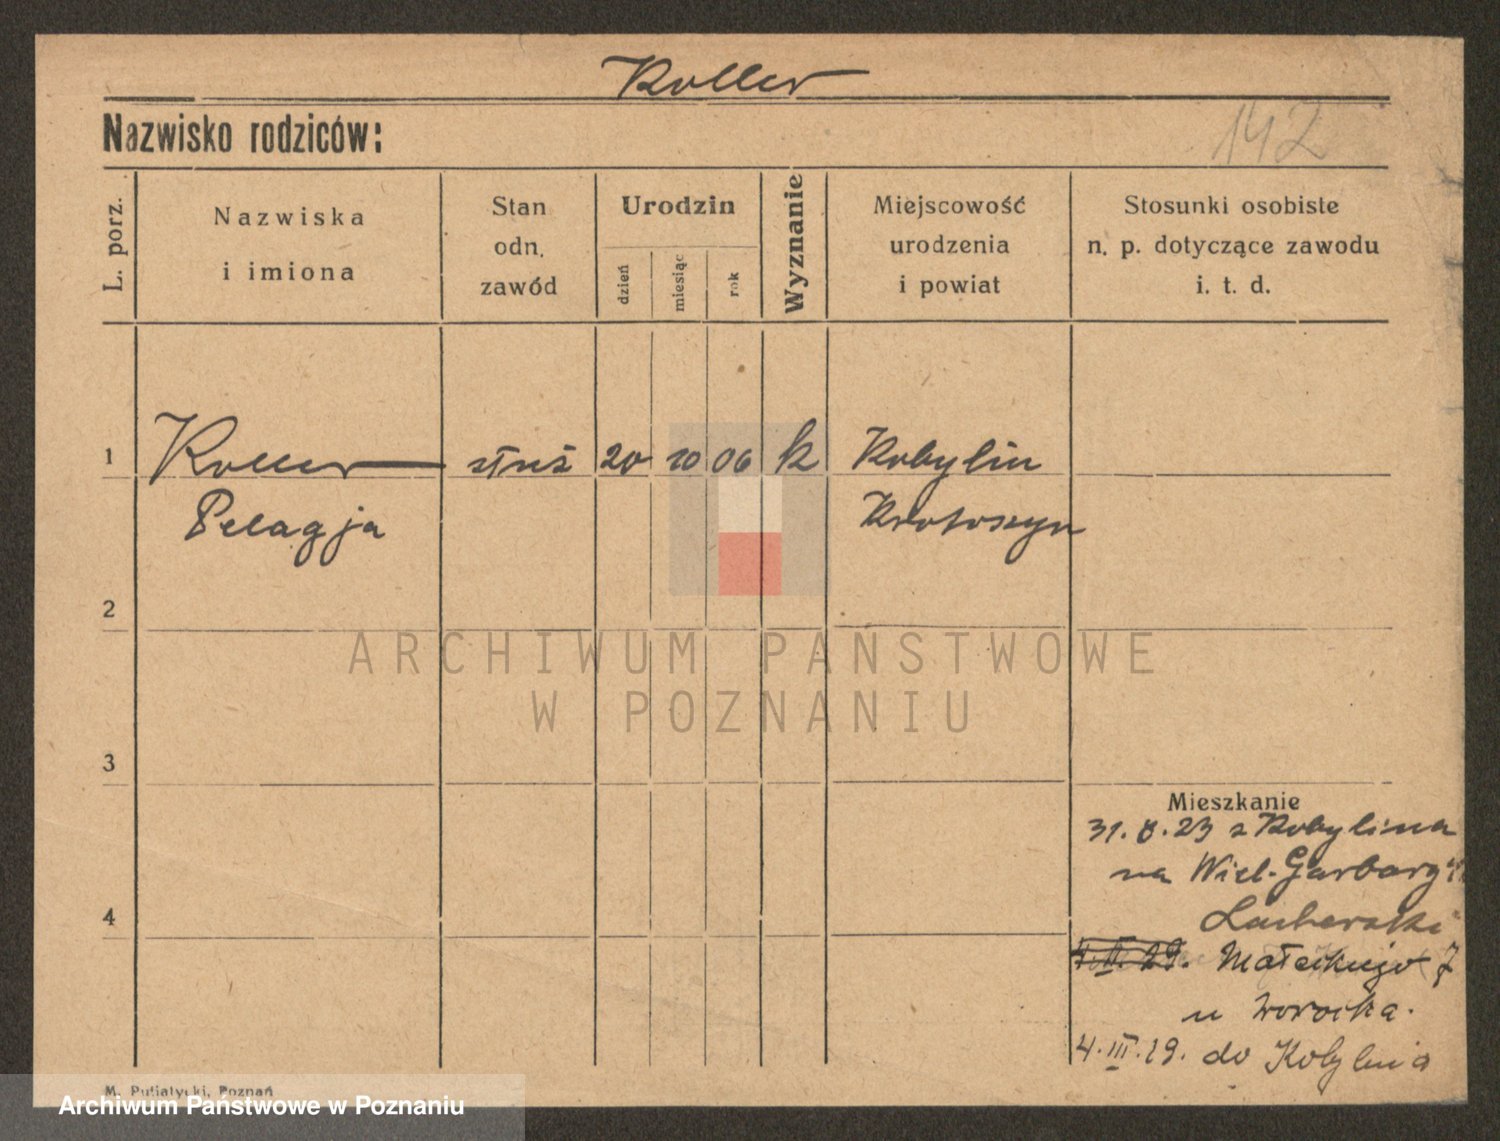 Koller
Nazwisko rodziców:
142
L. porz.
Nazwiska
i imiona
Stan
odn.
zawód
Urodzin
dzień
miesiąc
rok
Wyznanie
Miejscowość
urodzenia
i powiat
Stosunki osobiste
n. p. dotyczące zawodu
i. t. d.
1
Koller
służ
20
10
06
k
Kobylin
Pelagja
Krotoszyn
2
ARCHIWUM PAŃSTWOWE
W POZNANIU
3
Mieszkanie
31. 8. 23 z Kobylina
na Wiel. Garbary
4
4. III. 29. Małeckiego 7
u
4. III. 29. do
M. Putiatycki, Poznań
Archiwum Państwowe w Poznaniu